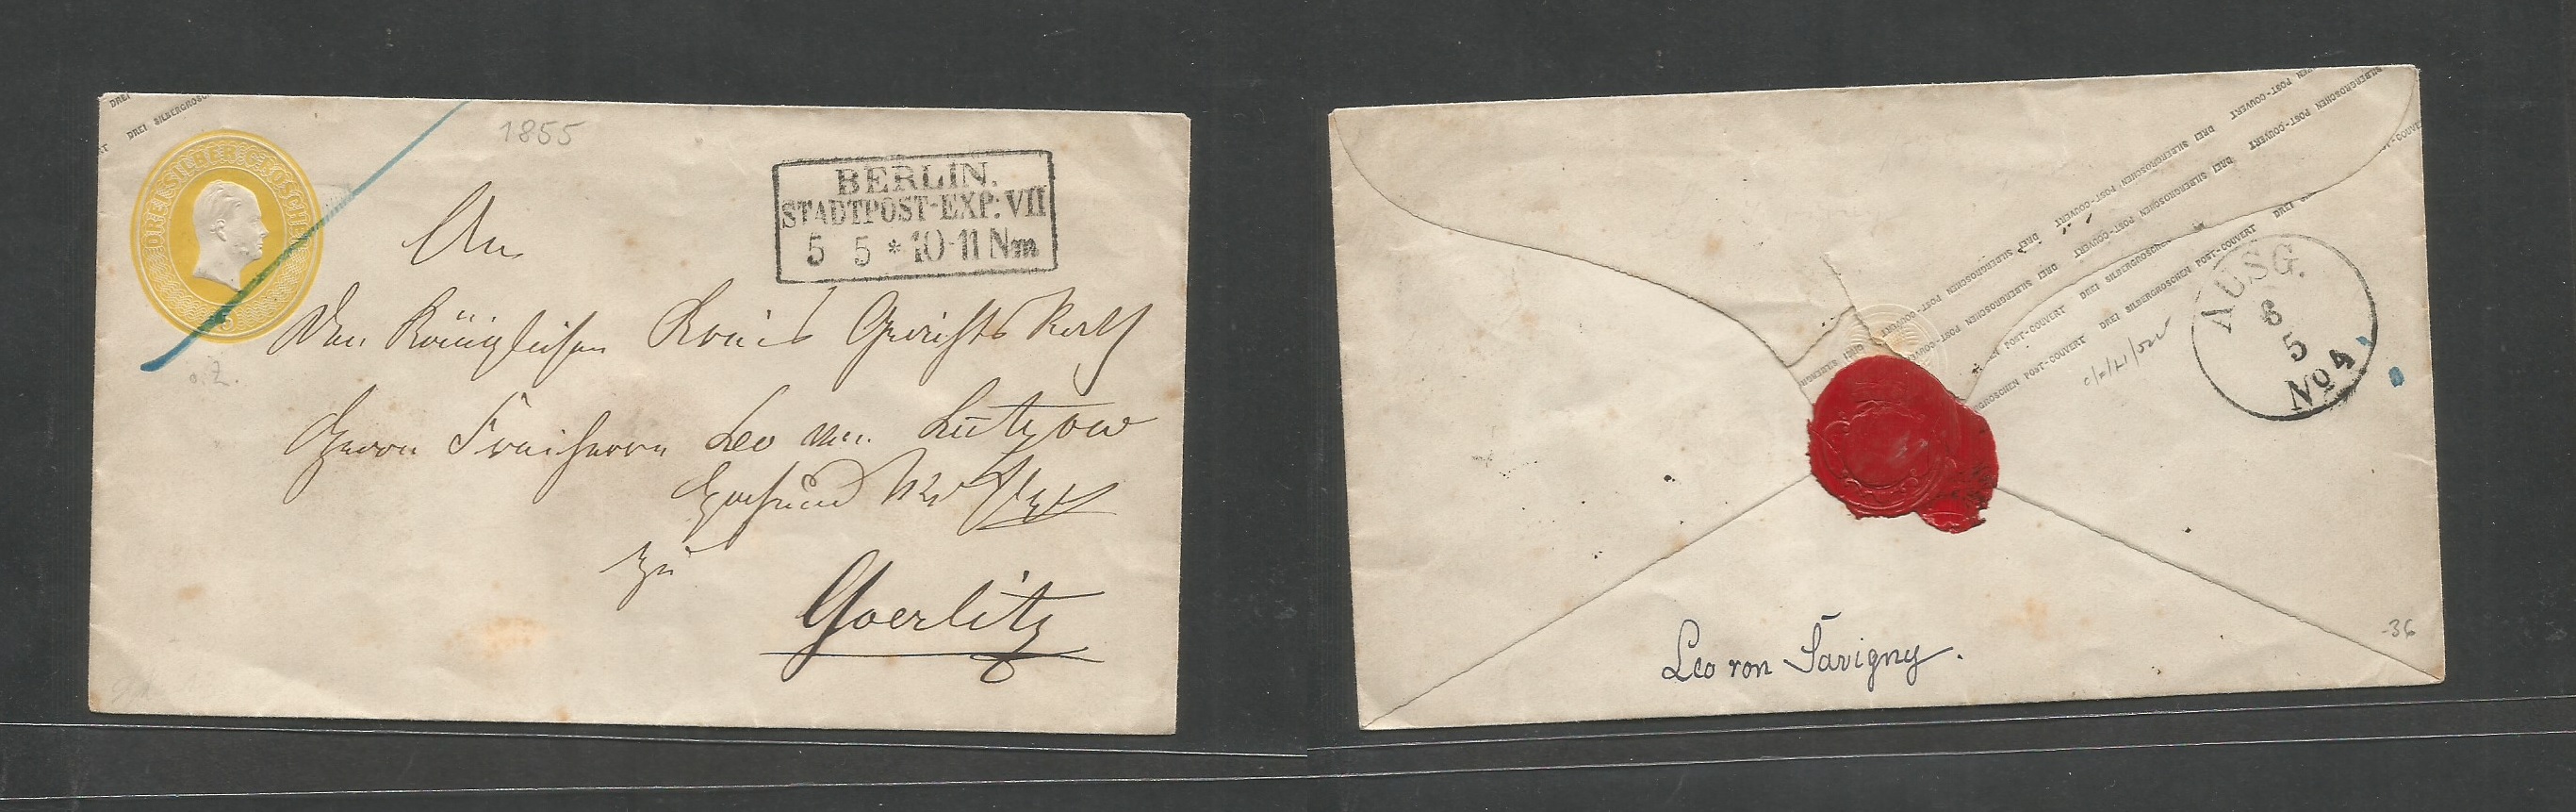 DREI SILBERGROSCHEN
DREI SILBERGROSCHEN
3
1855
BERLIN.
STADTPOST-EXP: VII
5 5 * 10-11 Nm
An
den Königlichen Kreis Gerichts Rath
Herrn Freiherrn Leo von Lützow
zu
Goerlitz
o. Z.
DREI SILBERGROSCHEN POST-COUVERT
DREI SILBERGROSCHEN POST-COUVERT
DREI SILBERGROSCHEN POST-COUVERT
AUSG.
6
5
No 4
Leo von Savigny.
-36